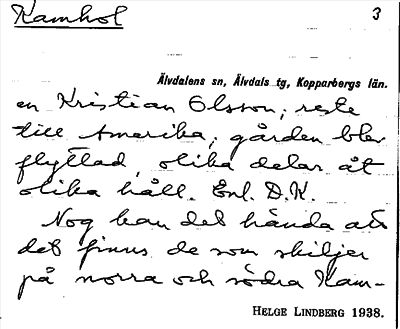 Kamhol
3
Älvdalens sn, Älvdals tg, Kopparbergs län.
en Kristian Olsson, reste
till Amerika, gården blev
flyttad, olika delar åt
olika håll. Enl. D.K.
Nog kan det hända att
det finns de som skiljer
på norra och södra Kam-
HELGE LINDBERG 1938.